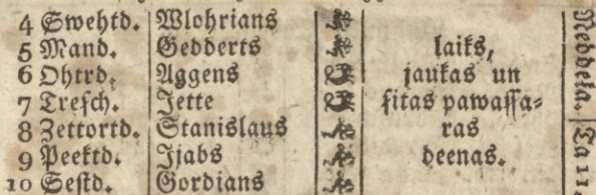 4 Swehtd. Wlohrians
5 Mand. Gedderts laiks,
6 Ohtrd. Aggens jaukas un
7 Tresch. Jette sitas pawassa-
8 Zettortd. Stanislaus ras
9 Peektd. Ijabs deenas.
10 Sestd. Gordians
Neddeka.